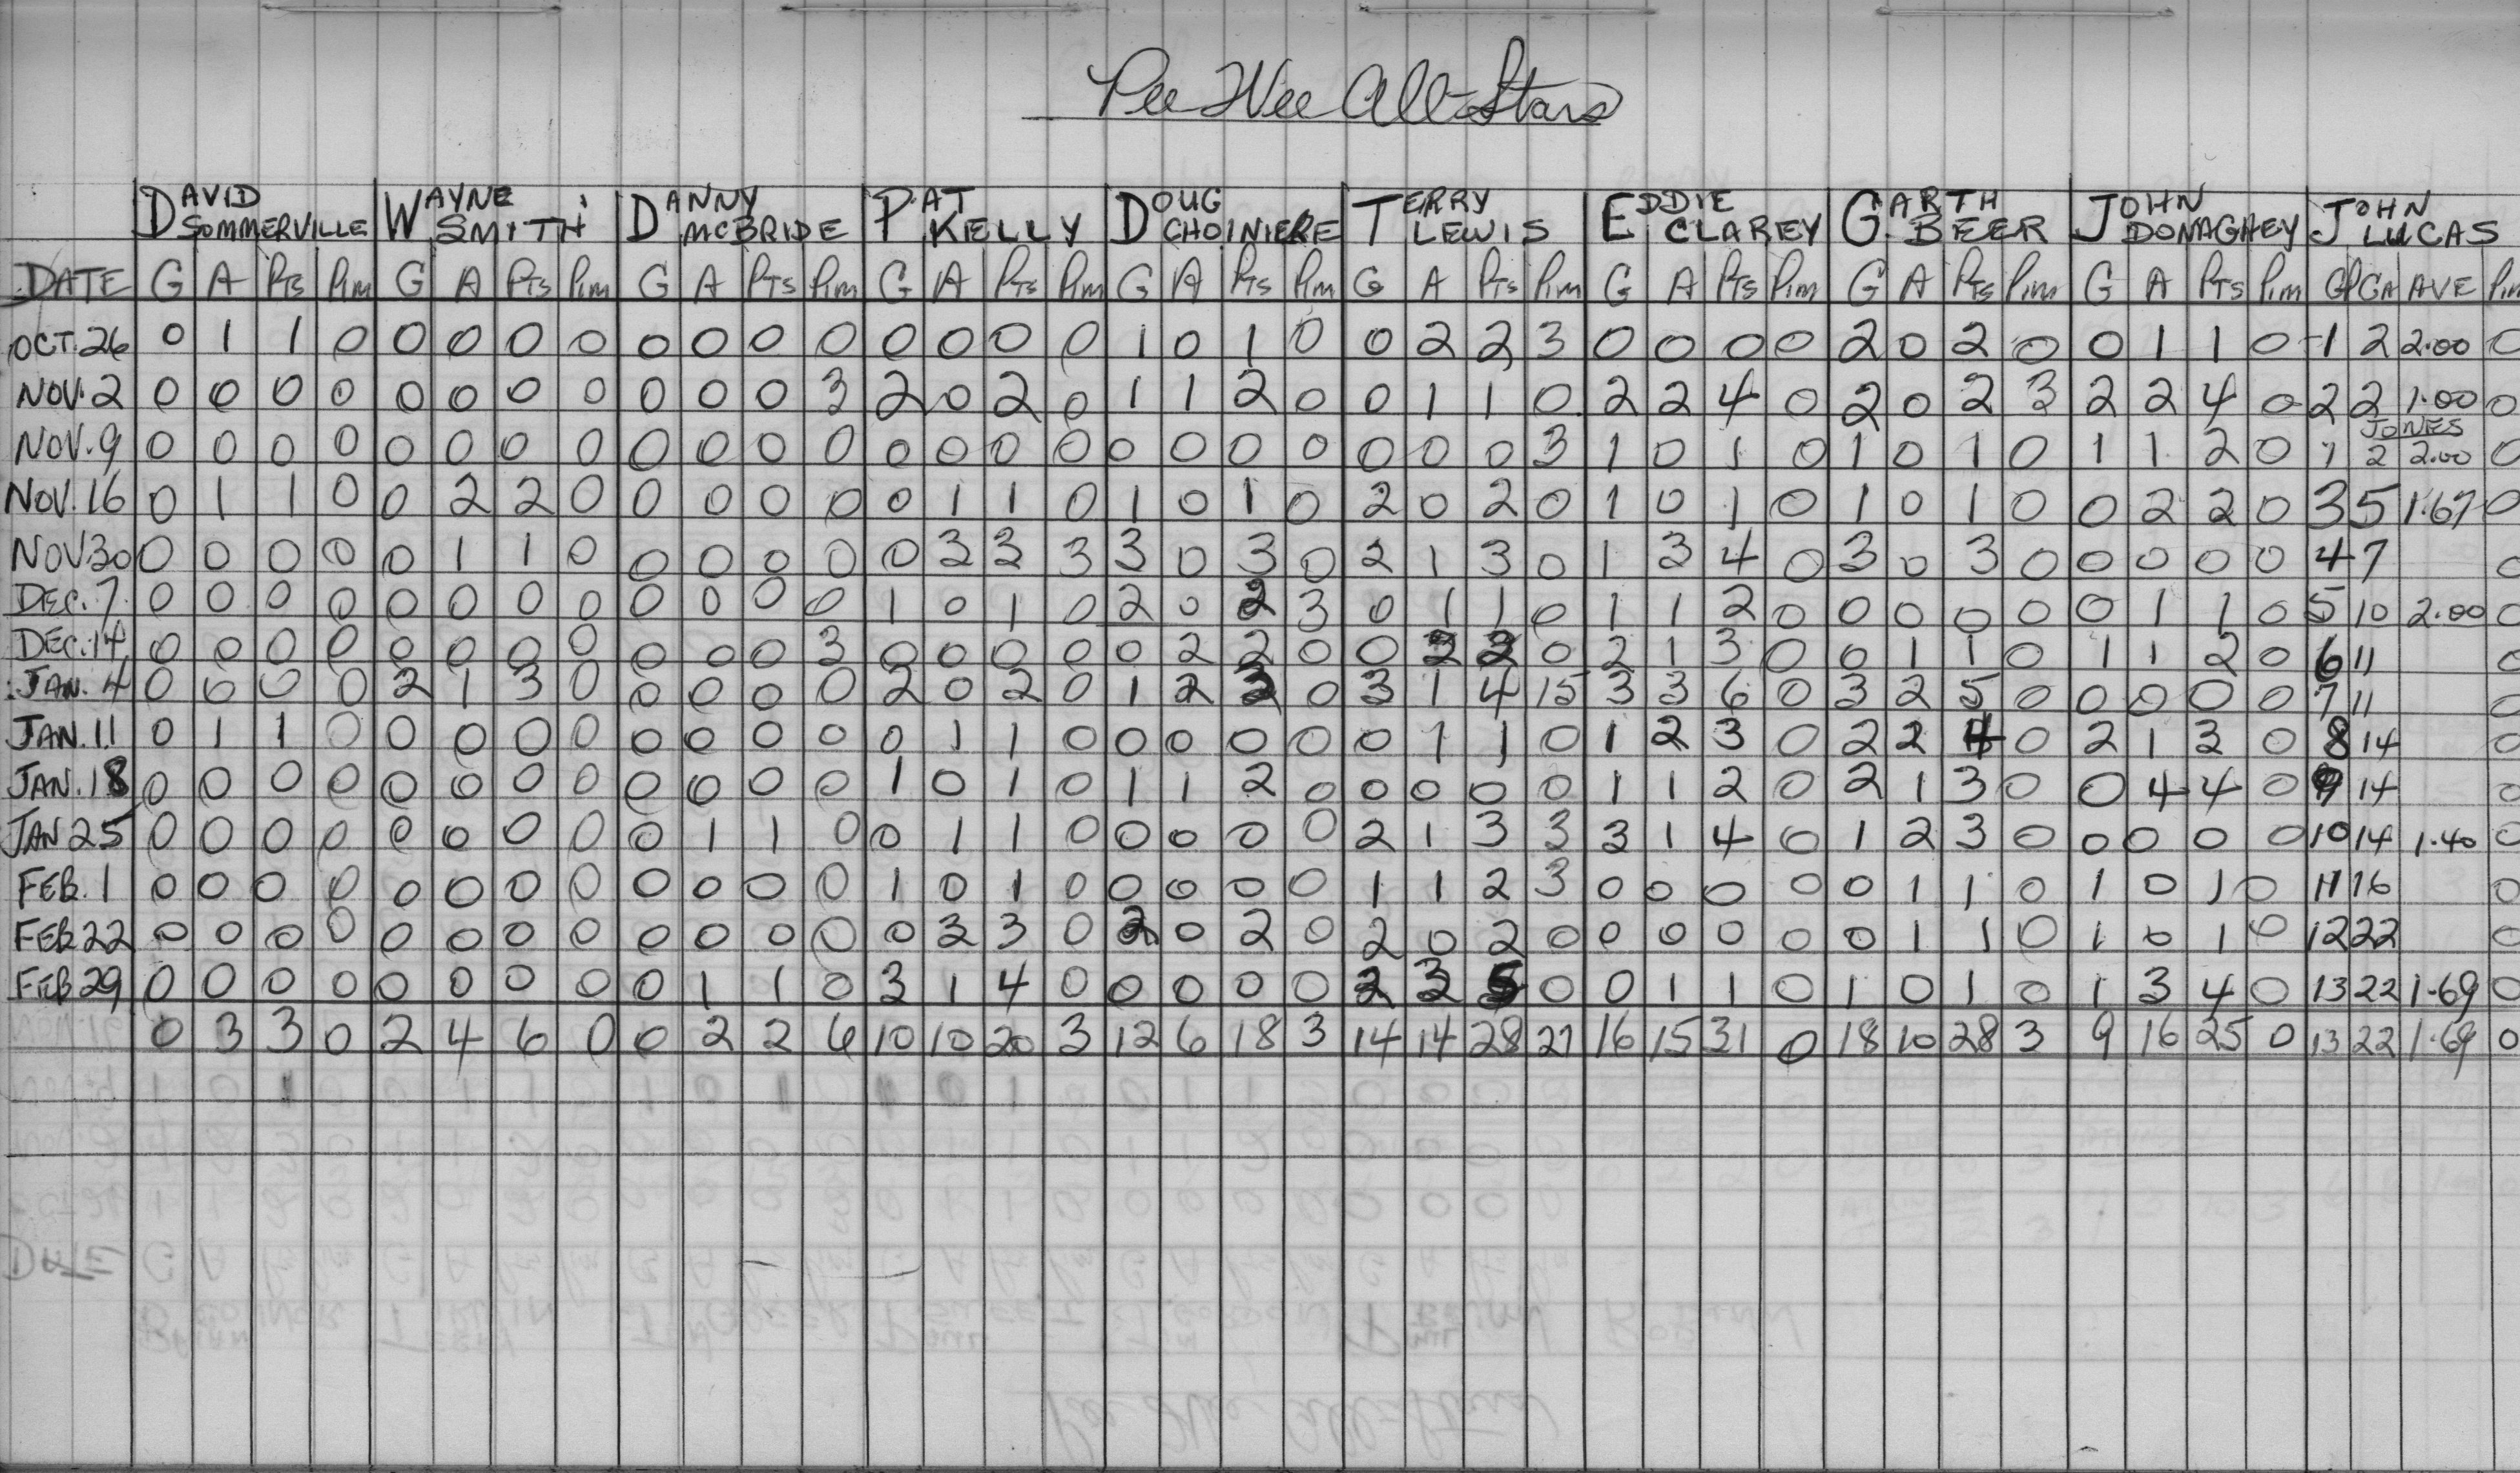 Pee Wee All-Stars
DAVID SOMMERVILLE WAYNE SMITH DANNY McBRIDE PAT KELLY DOUG CHOINIERE TERRY LEWIS EDDIE CLAREY GARTH BEER JOHN DONAGHEY JOHN LUCAS
DATE G A PTS Pim G A PTS Pim G A PTS Pim G A PTS Pim G A PTS Pim G A PTS Pim G A PTS Pim G A PTS Pim G A PTS Pim GP GA AVE Pim
OCT. 26 0 1 1 0 0 0 0 0 0 0 0 0 0 0 0 0 1 0 1 0 0 2 2 3 0 0 0 0 2 0 2 0 0 1 1 0 1 2 2.00 0
NOV. 2 0 0 0 0 0 0 0 0 0 0 0 3 2 0 2 0 1 1 2 0 0 1 1 0 2 2 4 0 2 0 2 3 2 2 4 0 2 2 1.00 0
JONES
NOV. 9 0 0 0 0 0 0 0 0 0 0 0 0 0 0 0 0 0 0 0 0 0 0 0 3 1 0 1 0 1 0 1 0 1 1 2 0 1 2 2.00 0
NOV. 16 0 1 1 0 0 2 2 0 0 0 0 0 0 1 1 0 1 0 1 0 2 0 2 0 1 0 1 0 1 0 1 0 0 2 2 0 3 5 1.67 0
NOV. 30 0 0 0 0 0 1 1 0 0 0 0 0 0 3 3 3 3 0 3 0 2 1 3 0 1 3 4 0 3 0 3 0 0 0 0 0 4 7 0
DEC. 7 0 0 0 0 0 0 0 0 0 0 0 0 1 0 1 0 2 0 2 3 0 1 1 0 1 1 2 0 0 0 0 0 0 1 1 0 5 10 2.00 0
DEC. 14 0 0 0 0 0 0 0 0 0 0 0 3 0 0 0 0 0 2 2 0 0 2 2 0 2 1 3 0 0 1 1 0 1 1 2 0 6 11 0
JAN. 4 0 0 0 0 2 1 3 0 0 0 0 0 2 0 2 0 1 2 3 0 3 1 4 15 3 3 6 0 3 2 5 0 0 0 0 0 7 11 0
JAN. 11 0 1 1 0 0 0 0 0 0 0 0 0 0 1 1 0 0 0 0 0 0 1 1 0 1 2 3 0 2 2 4 0 2 1 3 0 8 14 0
JAN. 18 0 0 0 0 0 0 0 0 0 0 0 0 1 0 1 0 1 1 2 0 0 0 0 0 1 1 2 0 2 1 3 0 0 4 4 0 9 14 0
JAN 25 0 0 0 0 0 0 0 0 0 1 1 0 0 1 1 0 0 0 0 0 2 1 3 3 3 1 4 0 1 2 3 0 0 0 0 0 10 14 1.40 0
FEB. 1 0 0 0 0 0 0 0 0 0 0 0 0 1 0 1 0 0 0 0 0 1 1 2 3 0 0 0 0 0 1 1 0 1 0 1 0 11 16 0
FEB 22 0 0 0 0 0 0 0 0 0 0 0 0 0 3 3 0 2 0 2 0 2 0 2 0 0 0 0 0 0 1 1 0 1 0 1 0 12 22 0
FEB 29 0 0 0 0 0 0 0 0 0 1 1 0 3 1 4 0 0 0 0 0 2 3 5 0 0 1 1 0 1 0 1 0 1 3 4 0 13 22 1.69 0
0 3 3 0 2 4 6 0 0 2 2 6 10 10 20 3 12 6 18 3 14 14 28 27 16 15 31 0 18 10 28 3 9 16 25 0 13 22 1.69 0